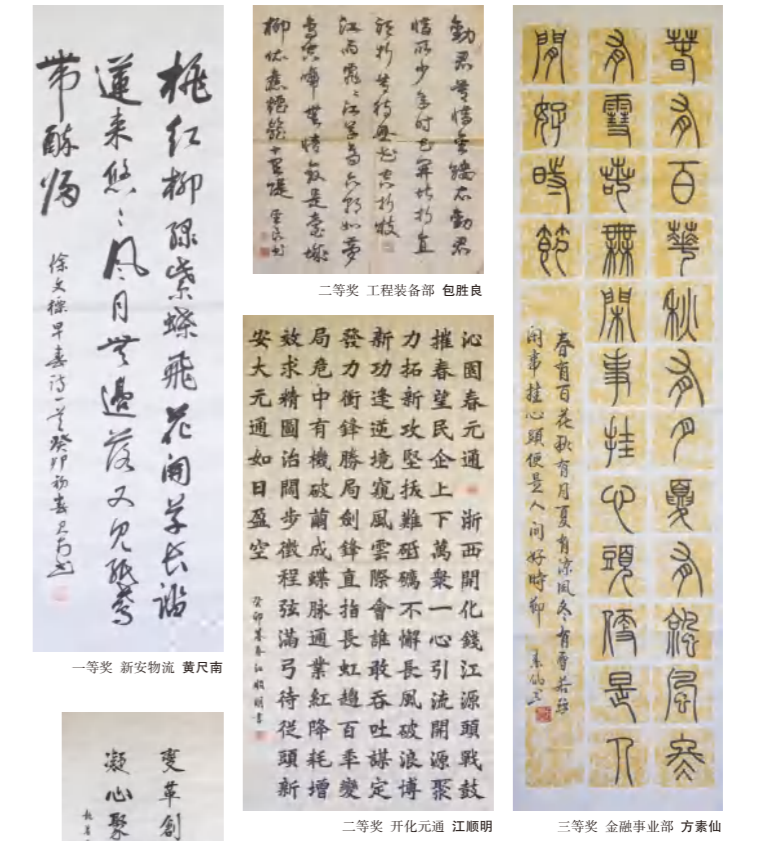 桃红柳绿紫蝶飞花开草长
来悠々风月無邊落又见纸鸢
带醉归
徐文標早春诗一首癸卯初春尺南书
一等奖 新安物流 黄尺南
劝君莫惜金缕衣劝君
惜取少年时花开堪折直
须折莫待無花空折枝
江雨霏々江草齐六朝如梦
鸟空啼無情最是臺城
柳依舊烟籠十里堤
二等奖 工程装备部 包胜良
沁園春元通 浙西開化錢江源頭戰鼓
摧春望民企上下萬衆一心引流開源聚
力拓新攻堅拔難砥礪不懈長風破浪博
新功逢逆境窺風雲際會誰敢吞吐謀定
發力衝鋒勝局劍鋒直指長虹趨百年變
局危中有機破繭成蝶脉通業紅降耗增
效求精圖治闊步徵程弦滿弓待從頭新
安大元通如日盈空
癸卯暮春江順明書
二等奖 开化元通 江顺明
春有百華秋有月夏有涼風冬
有雪若無閑事挂心頭便是人
間好時節
春有百花秋有月夏有凉风冬有雪若無
闲事挂心頭便是人间好時節 素仙书
三等奖 金融事业部 方素仙
變革創
凝心聚